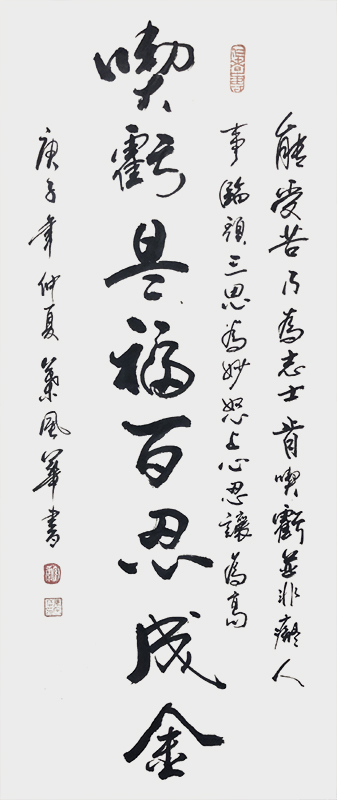 能受苦乃為志士肯喫虧並非癡人
事臨頭三思為妙怒上心忍讓為高
喫虧是福百忍成金
庚子年仲夏風華書